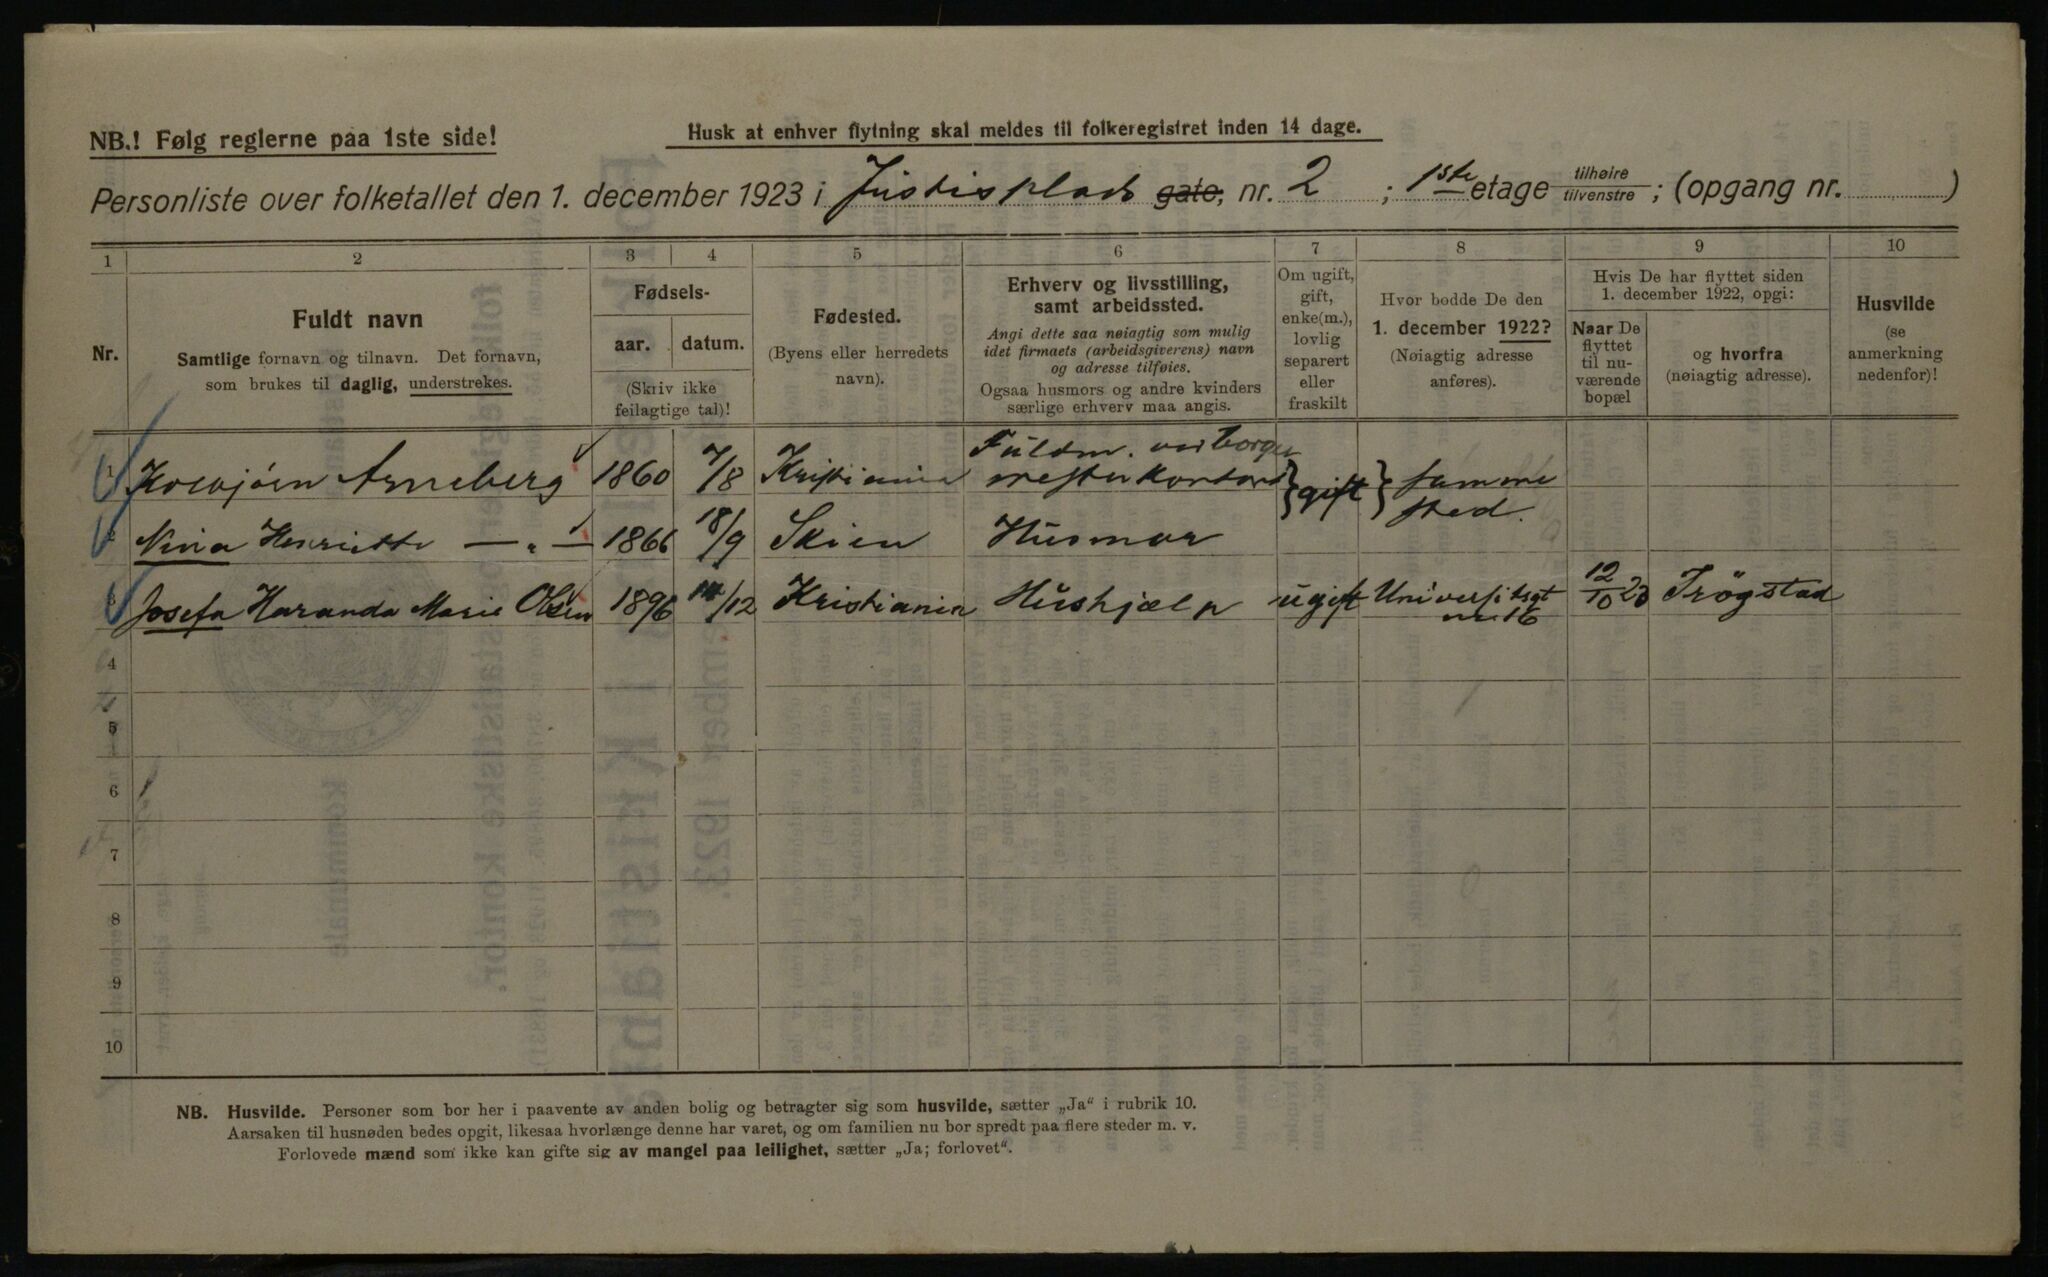 NB.! Følg reglerne paa 1ste side!
Husk at enhver flytning skal meldes til folkeregistret inden 14 dage.
Personliste over folketallet den 1. december 1923 i Justisplads gate, nr. 2 ; 1ste etage tilhøire tilvenstre ; (opgang nr. )
1 2 3 4 5 6 7 8 9 10
Nr.
Fuldt navn
Samtlige fornavn og tilnavn. Det fornavn,
som brukes til daglig, understrekes.
Fødsels-
aar. datum.
(Skriv ikke
feilagtige tal)!
Fødested.
(Byens eller herredets
navn).
Erhverv og livsstilling,
samt arbeidssted.
Angi dette saa nøiagtig som mulig
idet firmaets (arbeidsgiverens) navn
og adresse tilføies.
Ogsaa husmors og andre kvinders
særlige erhverv maa angis.
Om ugift,
gift,
enke(m.),
lovlig
separert
eller
fraskilt
Hvor bodde De den
1. december 1922?
(Nøiagtig adresse
anføres).
Hvis De har flyttet siden
1. december 1922, opgi:
Naar De
flyttet
til nu-
værende
bopæl
og hvorfra
(nøiagtig adresse).
Husvilde
(se
anmerkning
nedenfor)!
1 Arneberg 1860 7/8 Kristiania Fuldm. ved borger
mesterkontoret } gift } samme
sted.
2 Nina Henriette — „ — 1866 18/9 Skien Husmor
3 Josefa Haranda Marie Olsen 1896 /12 Kristiania Hushjælp ugift Universitsgt
nr. 16 12/10 23 Trögstad
4
5
6
7
8
9
10
NB. Husvilde. Personer som bor her i paavente av anden bolig og betragter sig som husvilde, sætter „Ja“ i rubrik 10.
Aarsaken til husnøden bedes opgit, likesaa hvorlænge denne har varet, og om familien nu bor spredt paa flere steder m. v.
Forlovede mænd som ikke kan gifte sig av mangel paa leilighet, sætter „Ja; forlovet“.